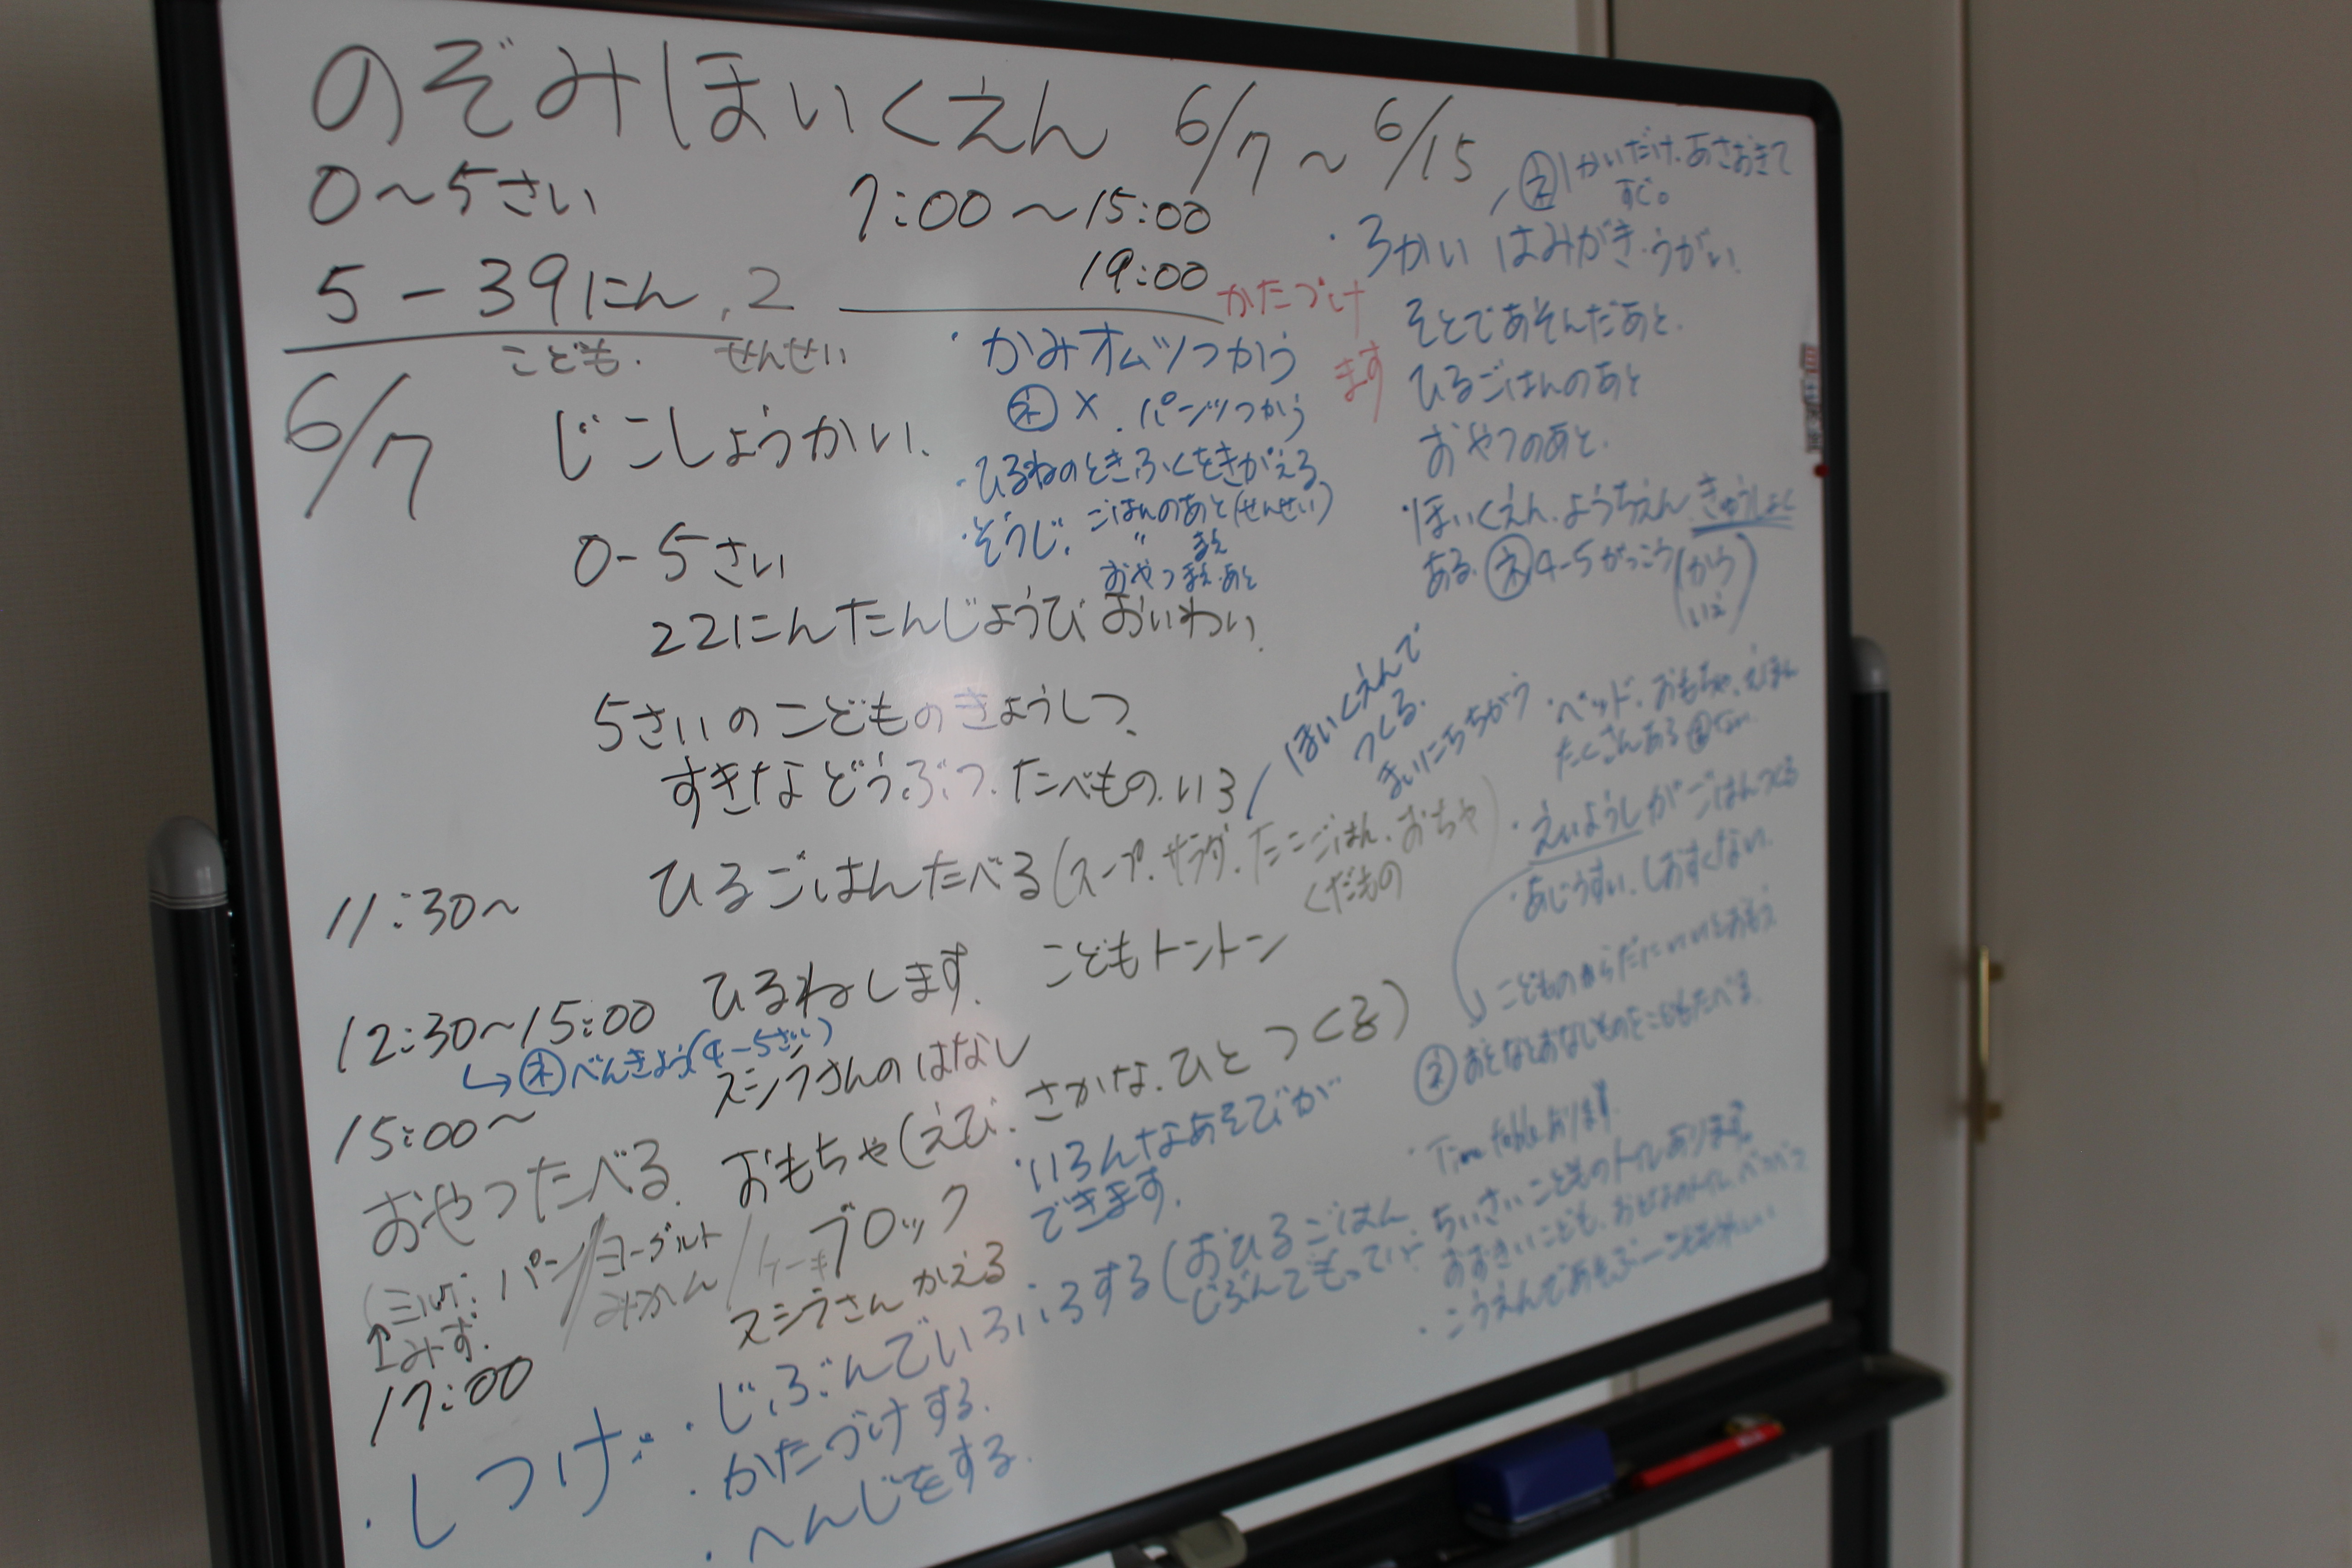 のぞみほいくえん 6/7～6/15
0～5さい 7:00～15:00
19:00
5-39にん,2
こども. せんせい
6/7 じこしょうかい.
0-5さい
22にんたんじょうび おいわい.
5さいのこどものきょうしつ.
すきなどうぶつ.たべもの.いろ
11:30～ ひるごはんたべる(スープ.サラダ.たこごはん.おちゃ)
くだもの
ほいくえんで
つくる.
まいにちちがう
12:30～15:00 ひるねします. こどもトントン
↳㋧べんきょう(4-5さい)
スシラさんのはなし
15:00～
おやつたべる. おもちゃ(えび.さかな.ひと つくる)
ブロック
(ミルク: パン/ヨーグルト
みかん/ケーキ
↑みず.
スシラさん かえる
17:00
・かみオムツつかう
㋧× .パンツつかう
かたづけ
ます
・ひるねのときふくをきがえる
・そうじ. ごはんのあと(せんせい)
〃 まえ
おやつ まえ.あと
・いろんなあそびが
できます.
・しつけ: ・じぶんでいろいろする(おひるごはん
じぶんでもっていく
・かたづけする.
・へんじをする.
㋧1かいだけ.あさおきて
すぐ。
・3かい はみがき・うがい.
そとであそんだあと.
ひるごはんのあと
おやつのあと.
・ほいくえん.ようちえん.きゅうしょく
ある.㋧4-5がっこう(から
・ベッド.おもちゃ.えほん
たくさんある㋧ない
・えいようしがごはんつくる
・あじうすい.しおすくない.
こどものからだにいいとおもう
㋧おとなとおなじものをこどもたべる.
・Time tableあります.
ちいさいこどものトイレあります.
おおきいこども.おとなのトイレ.
・こうえんであそぶーこども